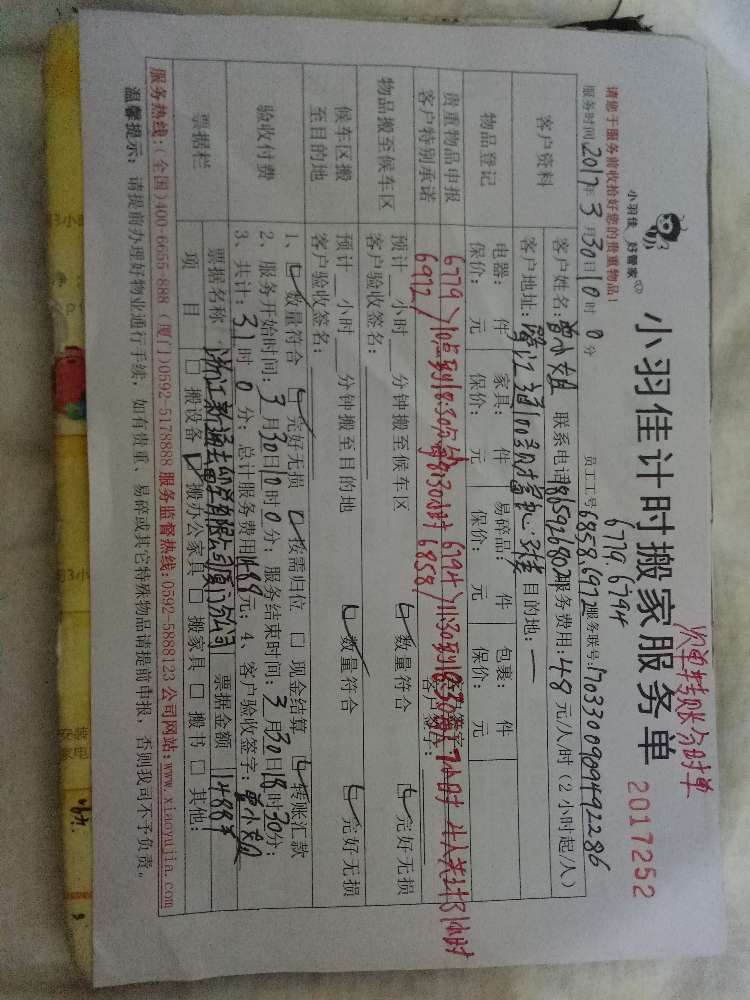 次单转账分时单
小羽佳 好管家
小羽佳计时搬家服务单 2017252
6779.6794
请您于服务前收拾好您的贵重物品!
员工工号:6858.6972 服务联号:170330090949 2286
服务时间:2017年3月30日10时0分
客户资料
客户姓名:曾小姐 联系电话:1865926802 服务费用:48元/人/时(2小时起/人)
客户地址: 目的地:一
物品登记
电器: 件 家具: 件 易碎品: 件 包裹: 件
保价: 元 保价: 元 保价: 元 保价: 元
贵重物品申报
客户特别承诺
6779 6972 10点到18:30 6794 6858 11:30到18:30 7小时 4人共计31小时
客户签字:
物品搬至候车区
预计 小时 分钟搬至候车区 数量符合 完好无损
客户验收签名:
候车区搬至目的地
预计 小时 分钟搬至目的地 数量符合 完好无损
客户验收签名:
验收付费
1、数量符合 完好无损 按需归位 □现金结算 转账汇款
2、服务开始时间:3月30日10时0分;服务结束时间:3月30日18时30分;
3、共计:31时0分;总计服务费用1488元;4、客户验收签字:曾小姐
票据栏
票据名称 浙江新通出国留学有限公司厦门分公司 票据金额 1488元
项目 □搬设备 搬办公家具 □搬家具 □搬书 □其他:
服务热线:(全国)400-6655-888 (厦门)0592-5178888 服务监督热线:0592-5888123 公司网站:www.xiaoyujia.com
温馨提示: 请提前办理好物业通行手续,如有贵重、易碎或其它特殊物品请提前申报,否则我司不予负责。